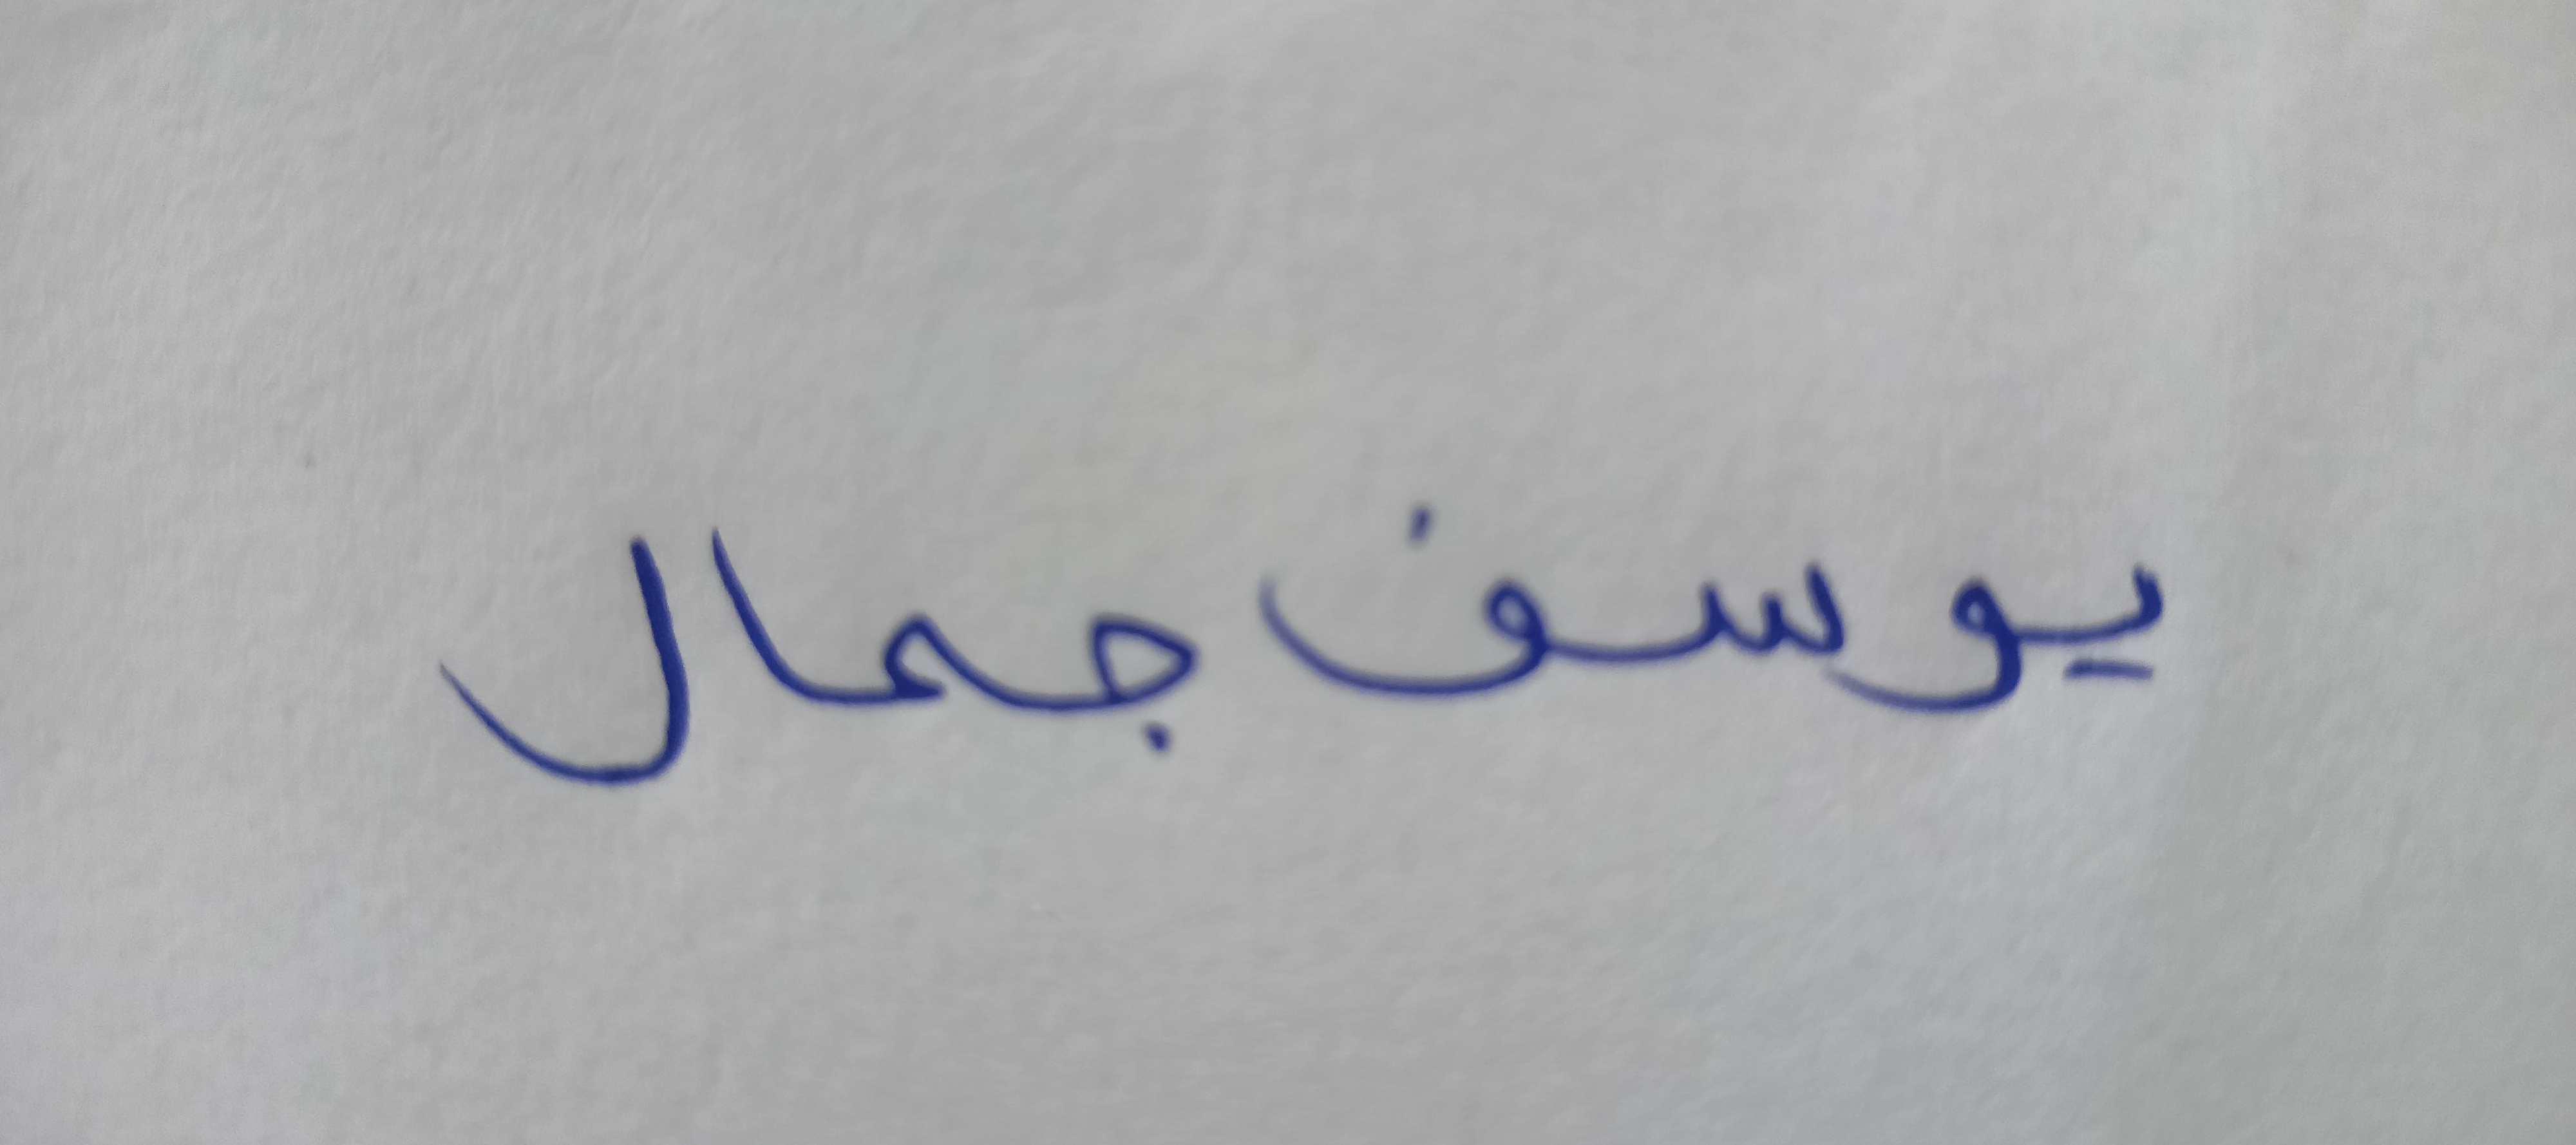 يوسف جمال